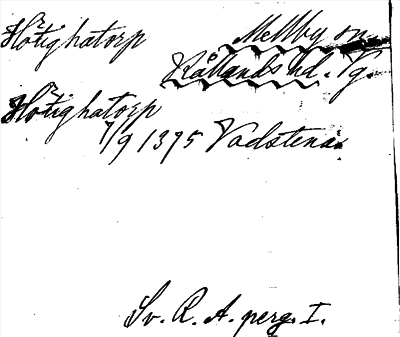 Hötighatorp Mellby sn
Kållands hd. Vg.
Hötighatorp
7/9 1375 Vadstena
Sv. R. A. perg. I.